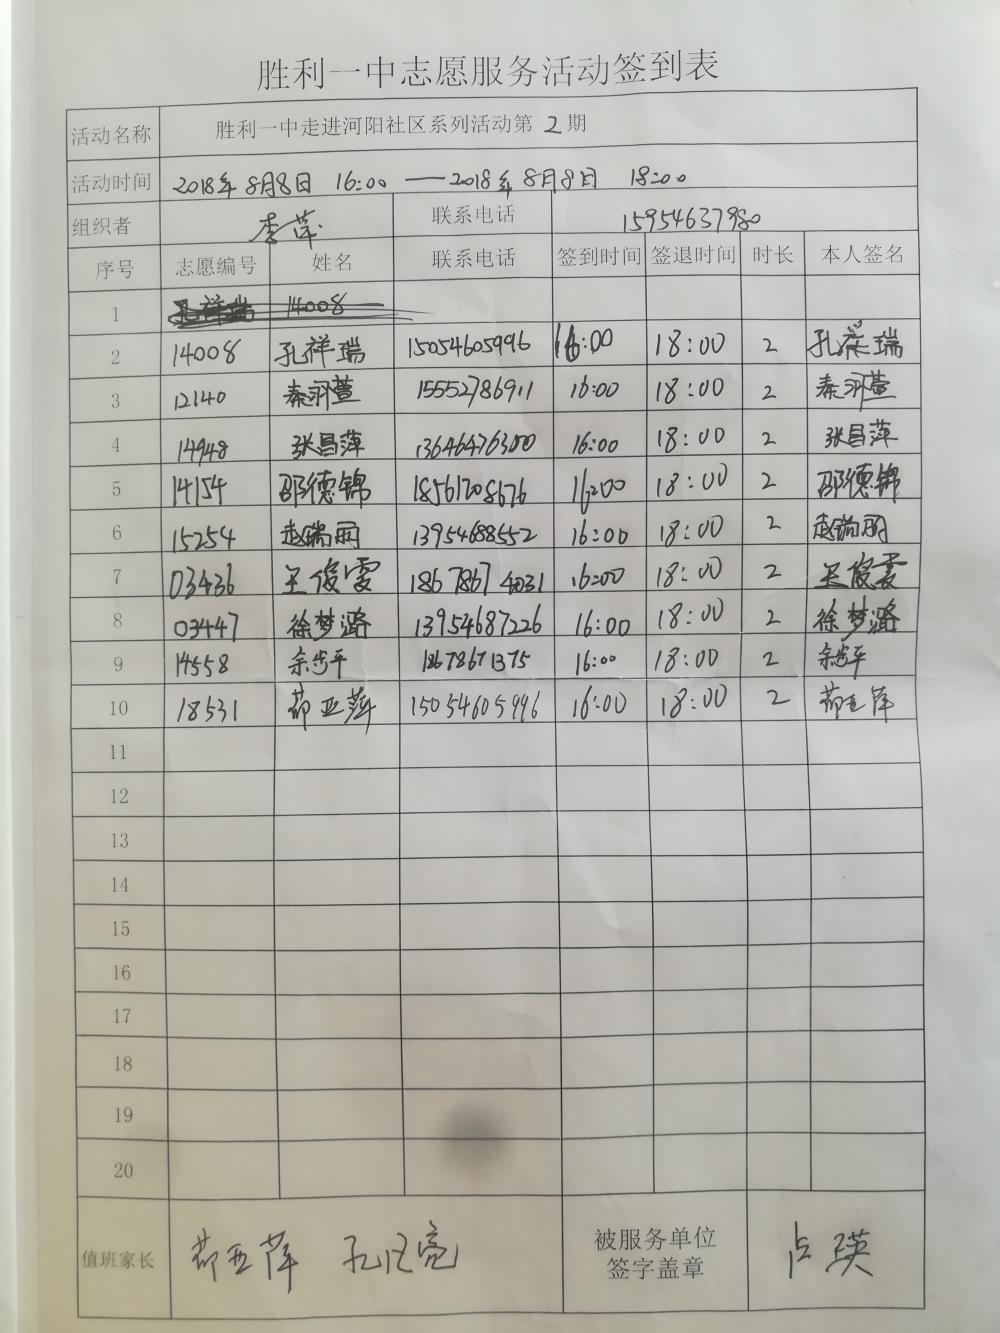 胜利一中志愿服务活动签到表
活动名称 胜利一中走进河阳社区系列活动第2期
活动时间 2018年8月8日 16:00——2018年8月8日 18:00
组织者 李萍 联系电话 15954637980
序号 志愿编号 姓名 联系电话 签到时间 签退时间 时长 本人签名
1 孔祥瑞 14008
2 14008 孔祥瑞 15054605996 16:00 18:00 2 孔祥瑞
3 12140 秦羽萱 15552786911 16:00 18:00 2 秦羽萱
4 14948 张昌萍 13646476300 16:00 18:00 2 张昌萍
5 14154 邵德锦 18561708676 16:00 18:00 2 邵德锦
6 15254 赵瑞丽 13954688552 16:00 18:00 2 赵瑞丽
7 03436 王俊雯 18678674031 16:00 18:00 2 王俊雯
8 03447 徐梦潞 13954687226 16:00 18:00 2 徐梦潞
9 14558 18678671375 16:00 18:00 2
10 18531 亚萍 15054605996 16:00 18:00 2 亚萍
11
12
13
14
15
16
17
18
19
20
值班家长 亚萍 孔 亮 被服务单位
签字盖章